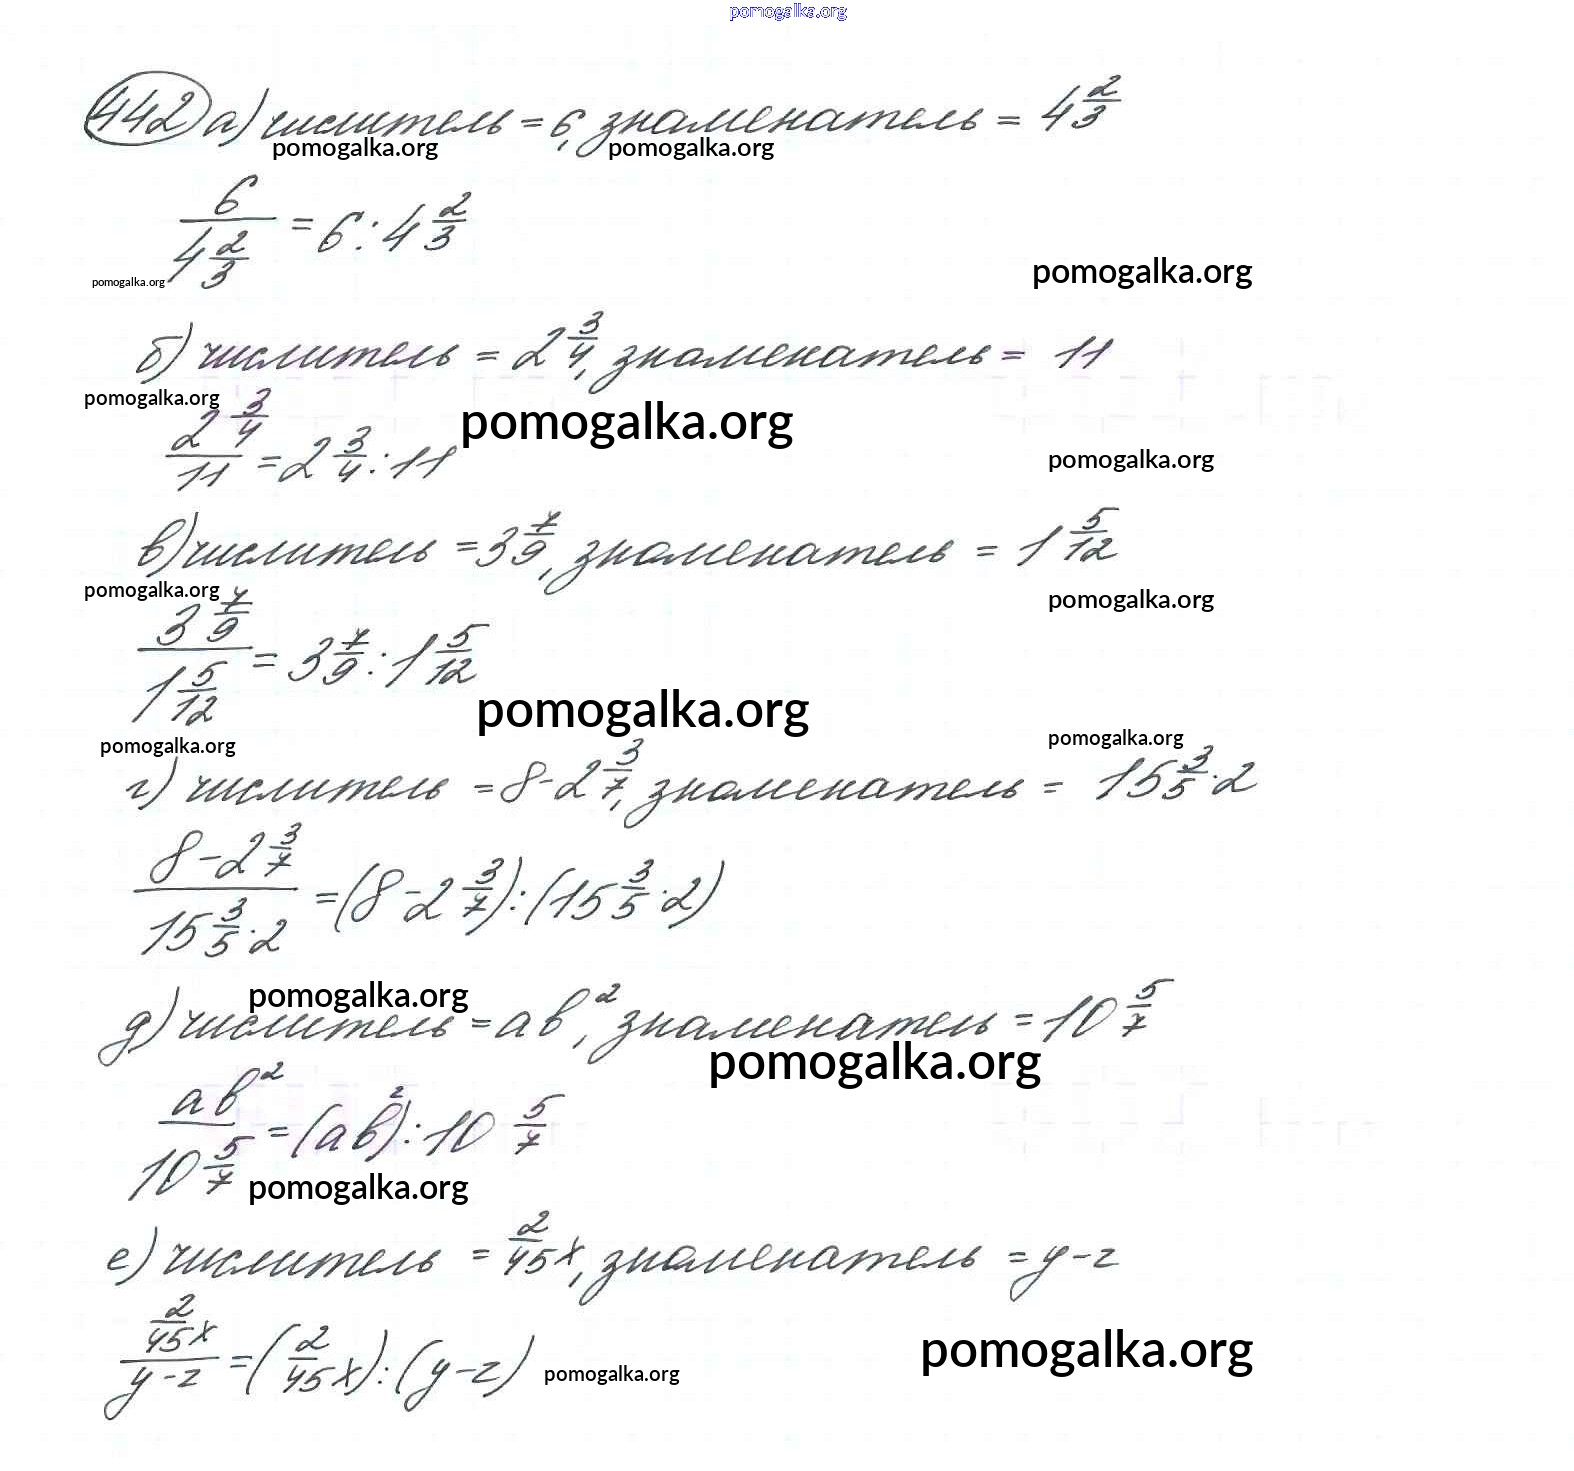 pomogalka.org
442 а) числитель = 6, знаменатель = 4 2/3
pomogalka.org pomogalka.org
6/(4 2/3) = 6 : 4 2/3
pomogalka.org pomogalka.org
б) числитель = 2 3/4, знаменатель = 11
pomogalka.org pomogalka.org
(2 3/4)/11 = 2 3/4 : 11
pomogalka.org
в) числитель = 3 7/9, знаменатель = 1 5/12
pomogalka.org pomogalka.org
(3 7/9)/(1 5/12) = 3 7/9 : 1 5/12
pomogalka.org
pomogalka.org pomogalka.org
г) числитель = 8 - 2 3/7, знаменатель = 15 3/5 · 2
(8 - 2 3/7)/(15 3/5 · 2) = (8 - 2 3/7) : (15 3/5 · 2)
pomogalka.org
д) числитель = ab², знаменатель = 10 5/7
pomogalka.org
ab²/(10 5/7) = (ab²) : 10 5/7
pomogalka.org
е) числитель = 2/45 x, знаменатель = y - z
(2/45 x)/(y - z) = (2/45 x) : (y - z)
pomogalka.org pomogalka.org